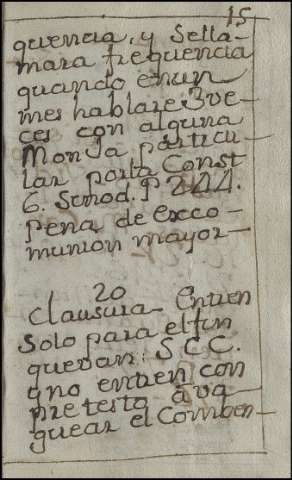 15
quencia, y Sella-
mara frequencia
quando en un
mes hablare 3 ve-
ces con alguna
Monja particu-
lar por la Const
6. Sinod. P 244.
Pena de exco-
munion mayor
20
Clausura Entren
Solo para el fin
que van: S C C.
y no entren con
pretesto a va
guear el Comben-